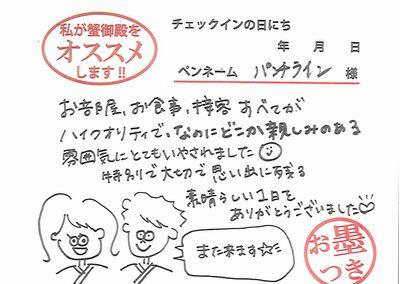 私が蟹御殿を
オススメ
します!!
チェックインの日にち
年 月 日
ペンネーム パンチライン 様
お部屋、お食事、接客 すべてが
ハイクオリティで、なのにどこか親しみのある
雰囲気にとてもいやされました
特別で大切で思い出に残る
素晴らしい1日を
ありがとうございました
また来ます☆ミ
お墨
つき